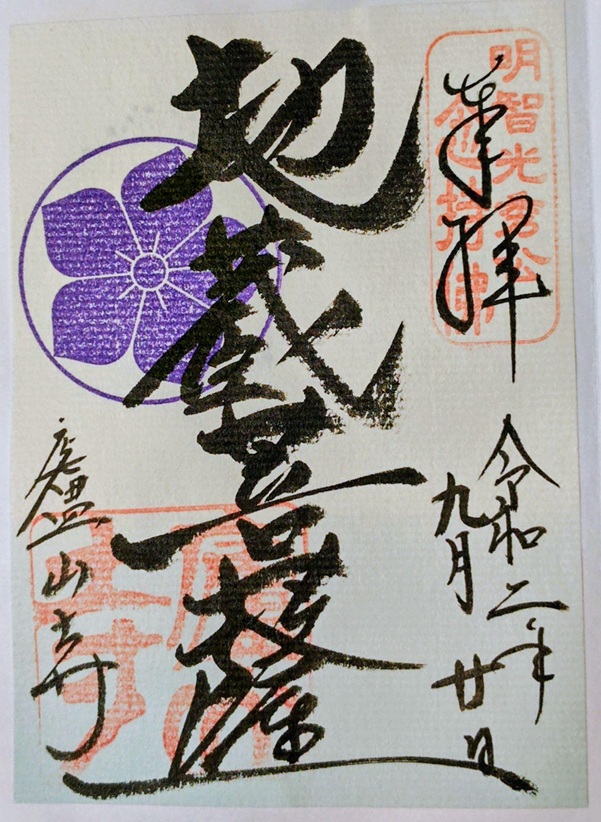 明智光秀公
念持佛
奉拝
令和二年
九月廿日
地蔵菩薩
廬山寺